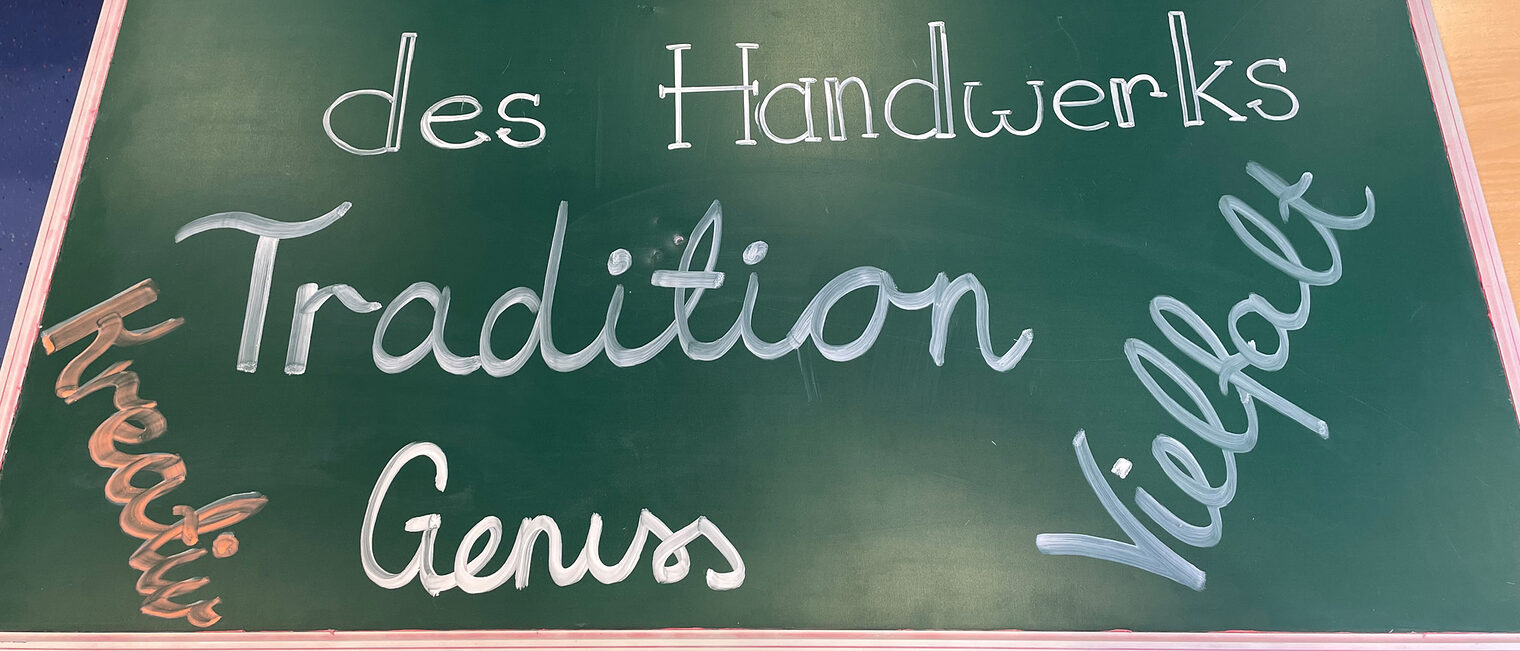 des Handwerks
Tradition
Kreativ
Vielfalt
Genuss